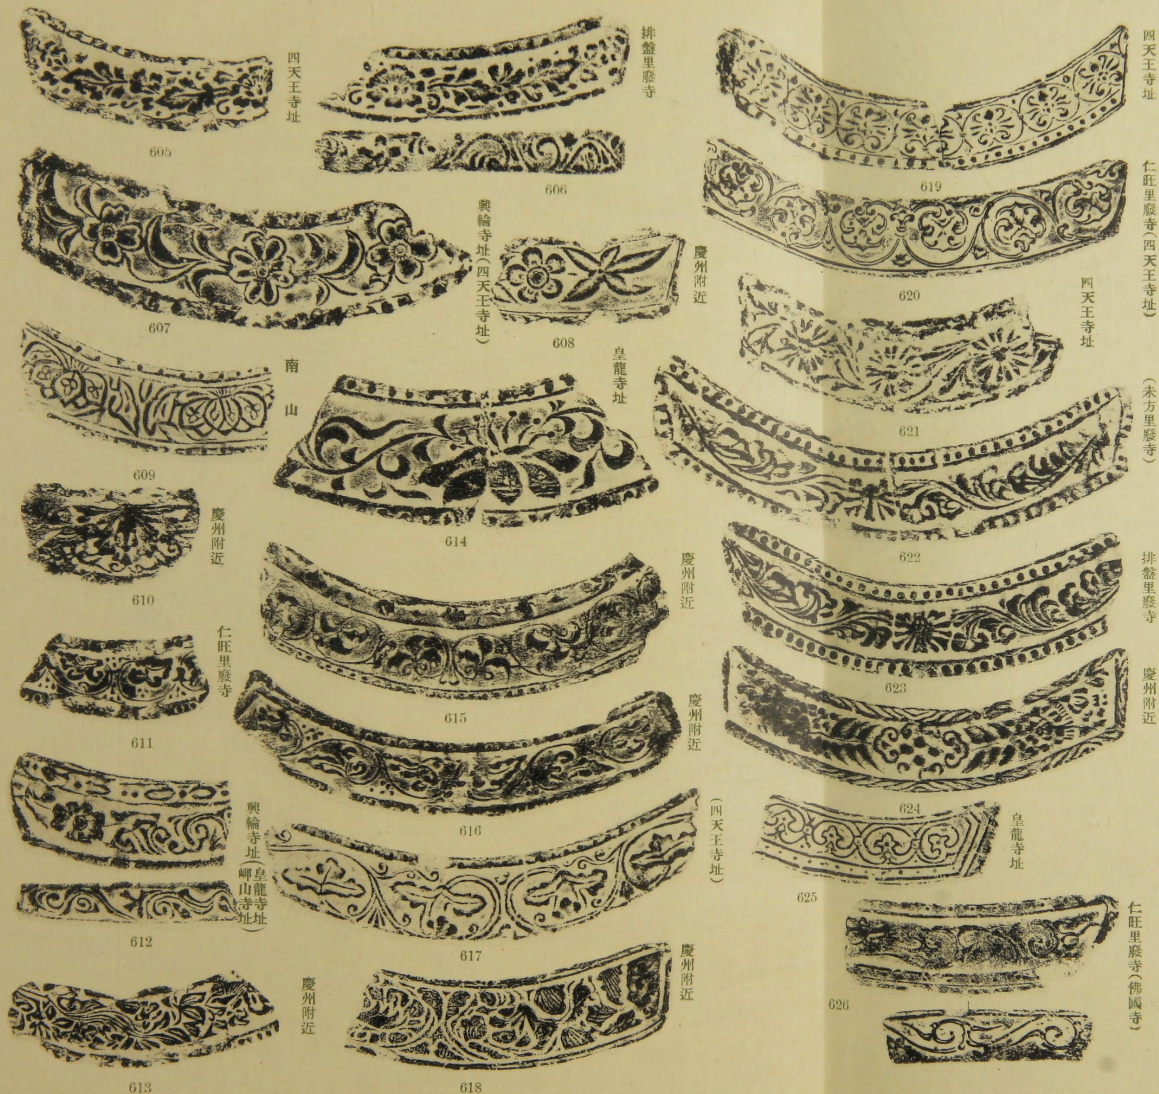 四天王寺址
605
排盤里廢寺
606
興輪寺址(四天王寺址)
607
慶州附近
608
南山
609
慶州附近
610
仁旺里廢寺
611
興輪寺址(皇龍寺址
岬山寺址)
612
慶州附近
613
皇龍寺址
614
慶州附近
615
慶州附近
616
(四天王寺址)
617
慶州附近
618
四天王寺址
619
仁旺里廢寺(四天王寺址)
620
四天王寺址
621
(未方里廢寺)
622
排盤里廢寺
623
慶州附近
624
皇龍寺址
625
仁旺里廢寺(佛國寺)
626